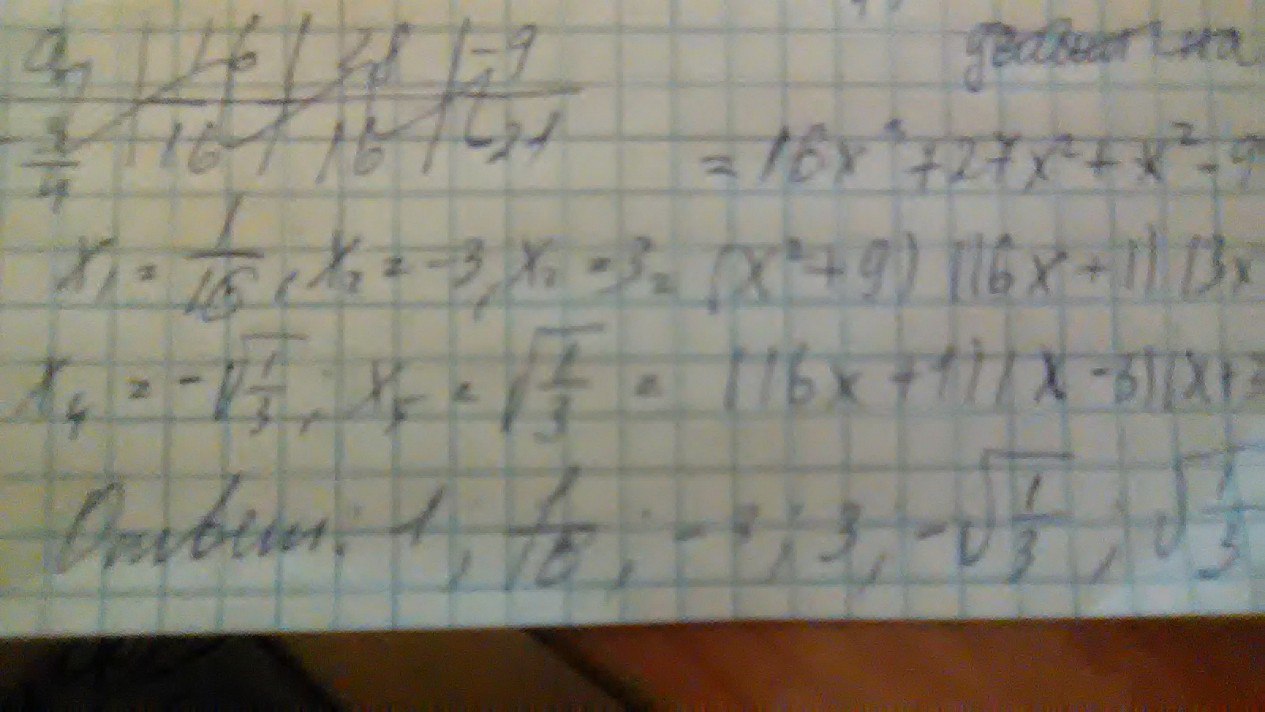 aₙ | 16 | 28 | -9
-3/4 | 16 | 16 | -21
= 16x⁴ + 27x² + x² - 9
x₁ = 1/16, x₂ = -3, x₂ = 3 = (x² + 9)(16x + 1)(3x
x₄ = -√(1/3), x₅ = √(1/3) = (16x + 1)(x - 3)(x + 3
Ответ: 1; 1/16; - ; 3; -√(1/3); √(1/3)